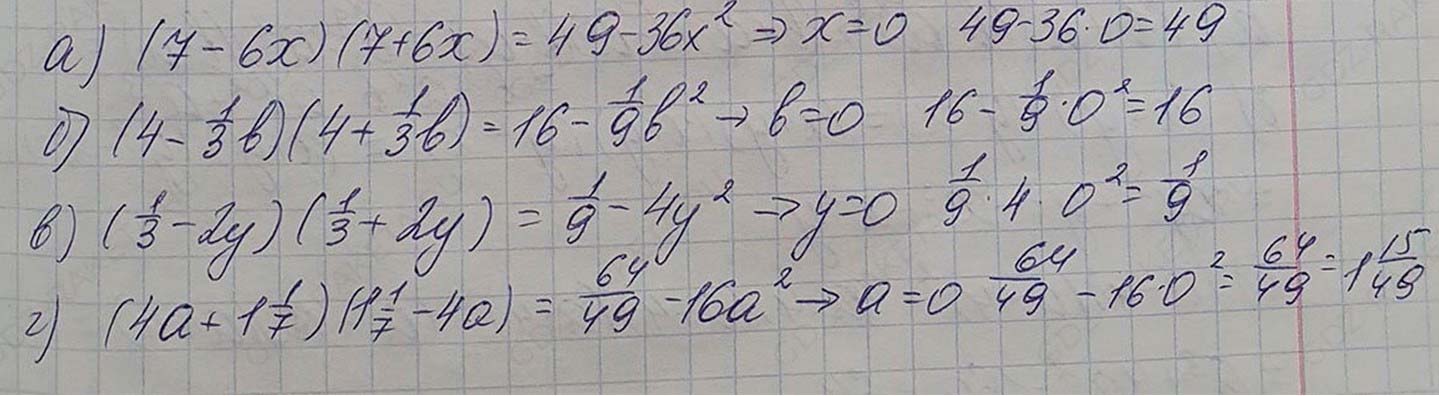 а) (7-6x)(7+6x)=49-36x² ⇒ x=0 49-36·0=49
б) (4-1/3b)(4+1/3b)=16-1/9b² → b=0 16-1/9·0²=16
в) (1/3-2y)(1/3+2y)=1/9-4y² → y=0 1/9·4·0²=1/9
г) (4a+1 1/7)(1 1/7-4a)=64/49-16a² → a=0 64/49-16·0²=64/49=1 15/49